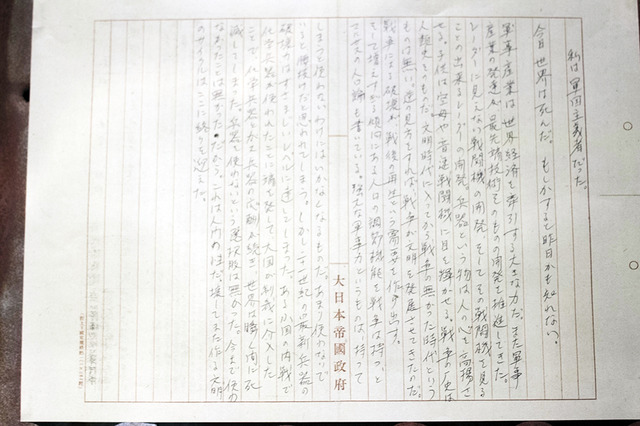 私は軍国主義者だった。
今日世界は死んだ。もしかすると昨日かも知れない。
軍事産業は世界経済を牽引する大きな力だ。また軍事
産業の発達が最先端技術そのものの開発を推進してきた。
レーダーに見えない戦闘機の開発、そしてその戦闘機を見る
ことの出来るレーダーの開発。兵器という物は人の心を高揚さ
せる。子供は空母や音速戦闘機に目を輝かせる。戦争の歴史は
人類史そのものだ。文明時代に入ってから戦争の無かった時代という
ものは無い。逆の見方をすれば戦争が文明を発展させてきたのだ。
戦争による破壊が戦後の再生という需要を作り出す。
そして増えすぎる傾向にある人口の調節機能を戦争は持つ、と
マルサスの人口論も書いている。強大な軍事力というものは持って
大日本帝國政府
しまうと使わないわけにはいかなくなるものだ。あまり使わないで
いると腑抜けだと思われてしまう。しかし二十一世紀の最新兵器の
破壊力はすさまじいレベルに達してしまった。ある小国の内戦で
化学兵器が使われたことに端を発して大国が制裁に介入した
ことで、化学兵器、から核兵器の応酬が続き、世界は瞬く間に死
滅してしまった。兵器を使わないという選択肢は無かった。今まで使わ
なかったことは無かった。だから、これは人間の性だ。壊してまた作る文明
のサイクルはここに終りを迎えた。